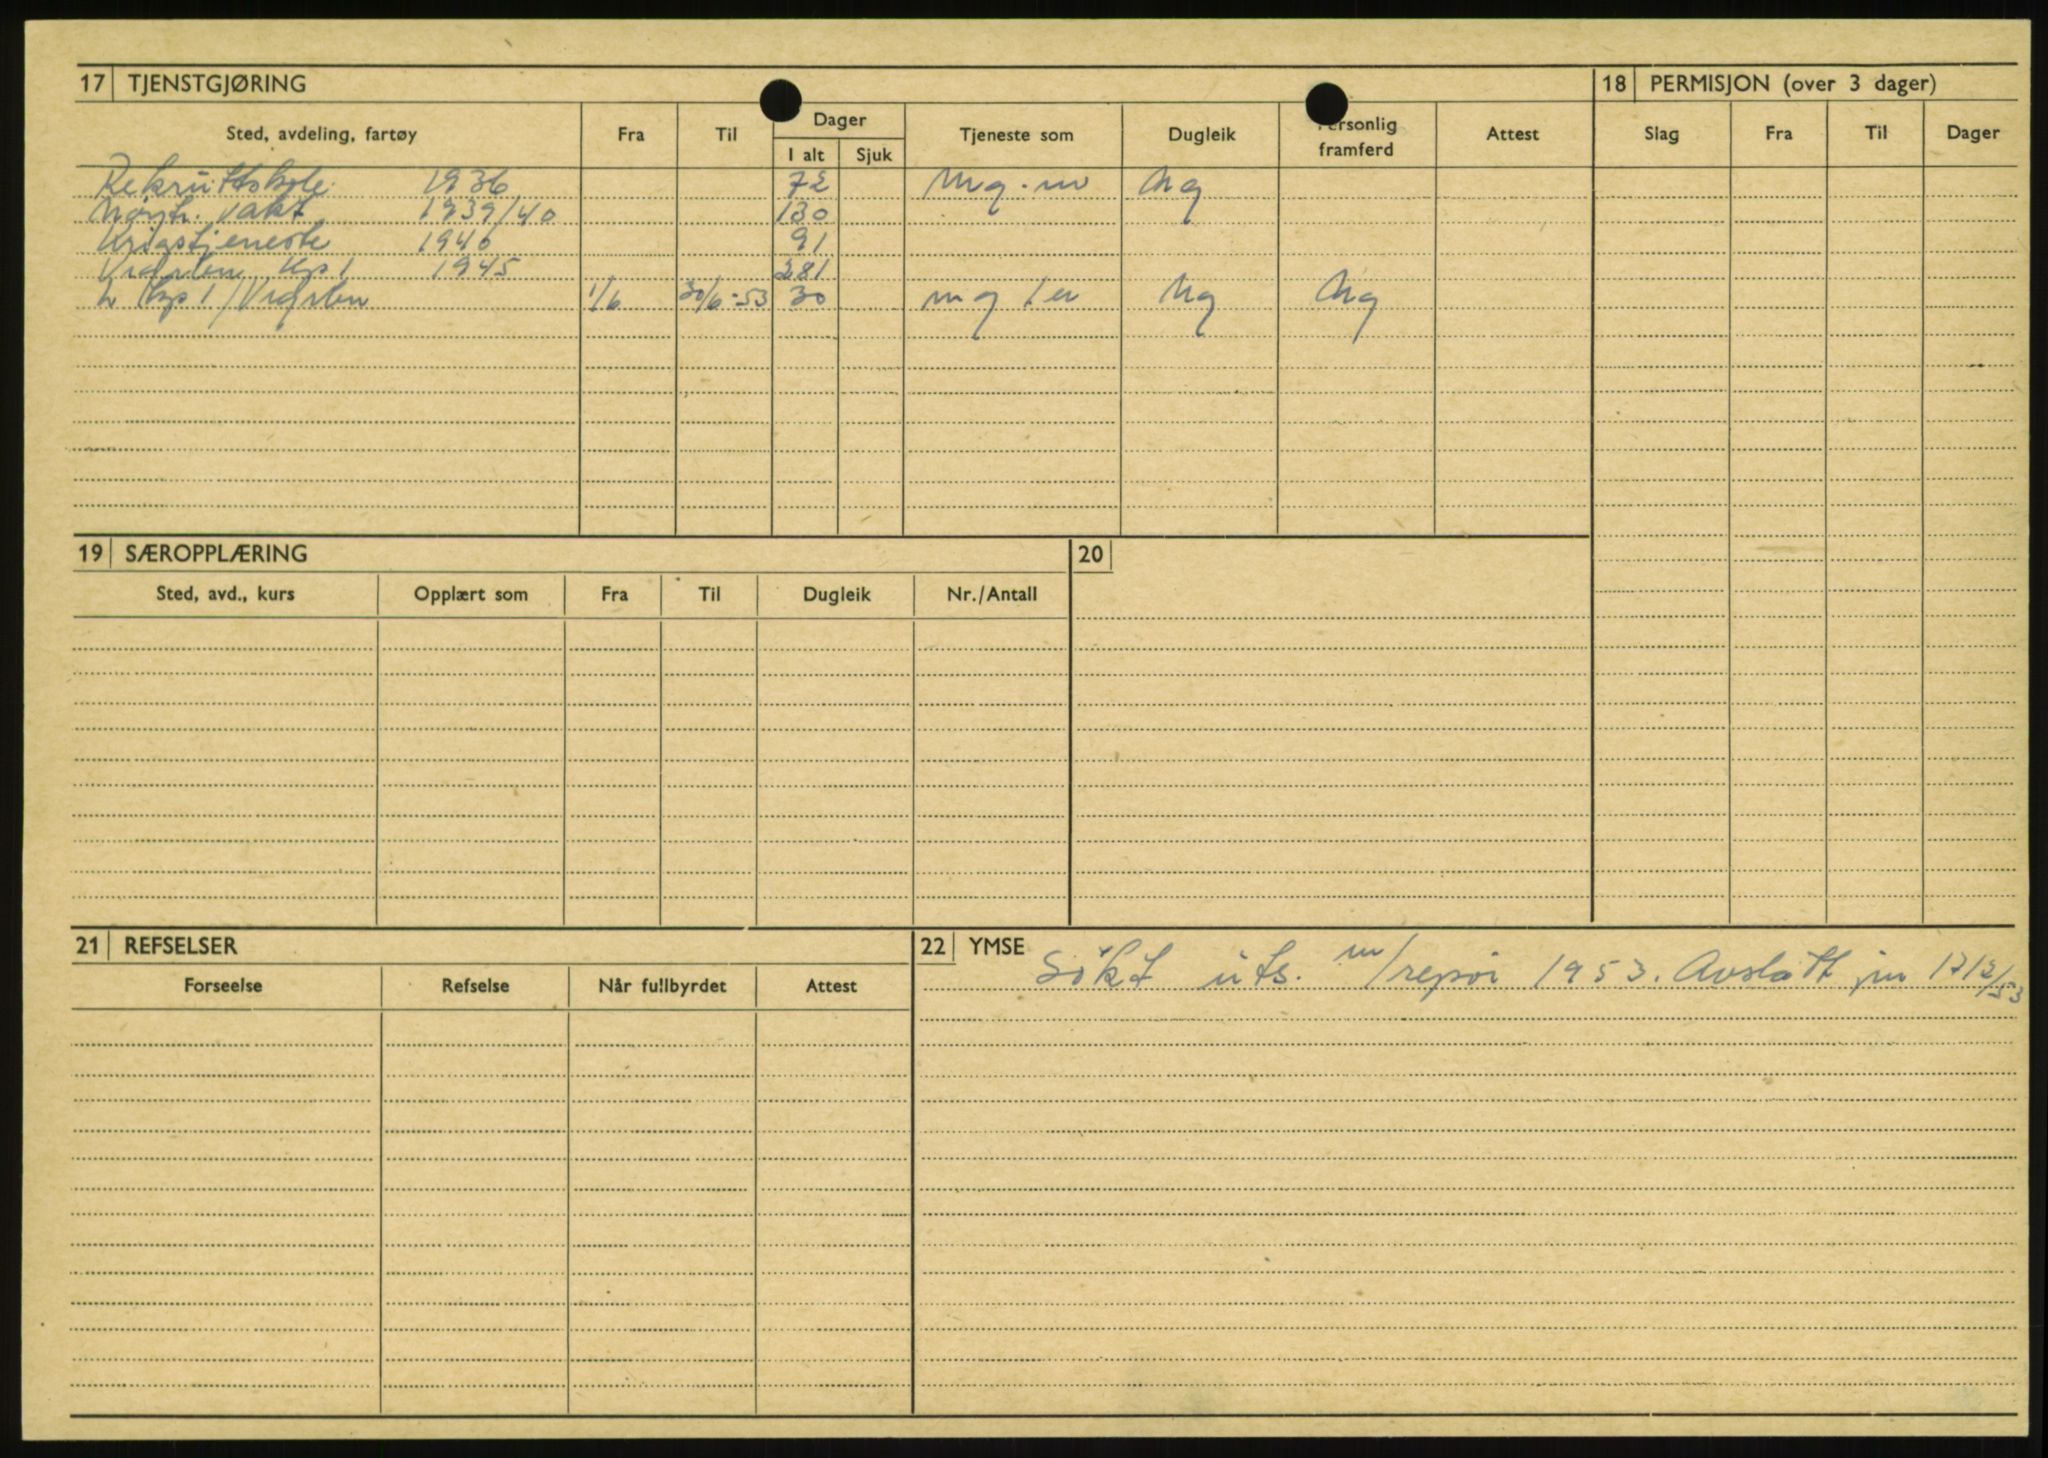 17 TJENSTGJØRING
Sted, avdeling, fartøy Fra Til Dager Tjeneste som Dugleik Personlig framferd Attest
I alt Sjuk
Rekruttskole 1936 72 Mg. m Mg
Nøytr. vakt 1939/40 130
Krigstjeneste 1940 91
Kp 1 1945 281
Kp 1/ 1/6 30/6-53 30 mg Mg Mg
18 PERMISJON (over 3 dager)
Slag Fra Til Dager
19 SÆROPPLÆRING
Sted, avd., kurs Opplært som Fra Til Dugleik Nr./Antall
20
21 REFSELSER
Forseelse Refselse Når fullbyrdet Attest
22 YMSE Søkt uts. m/repøv 1953. Avslått